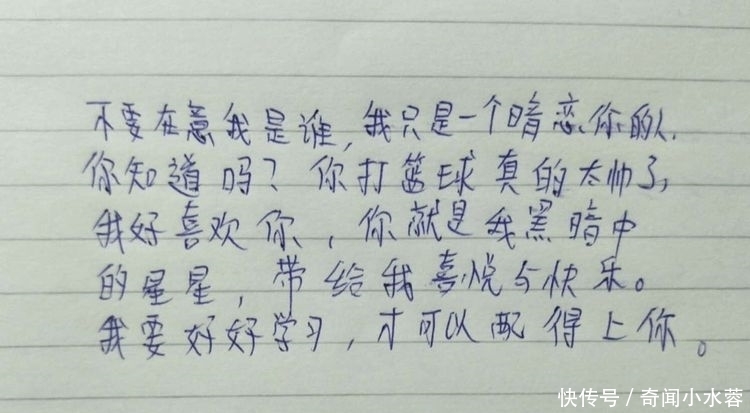 不要在意我是谁,我只是一个暗恋你的人.
你知道吗?你打篮球真的太帅了,
我好喜欢你,你就是我黑暗中
的星星,带给我喜悦与快乐。
我要好好学习,才可以配得上你。
快传号/奇闻小水蓉